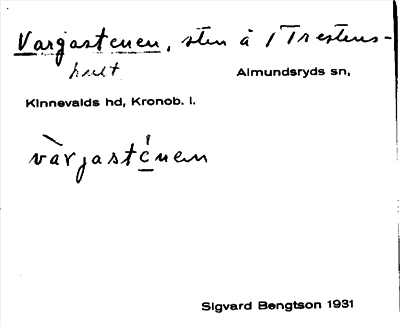 Vargastenen, sten å 1 Trestens-
hult Almundsryds sn,
Kinnevalds hd, Kronob. l.
vàrgasténen
Sigvard Bengtson 1931